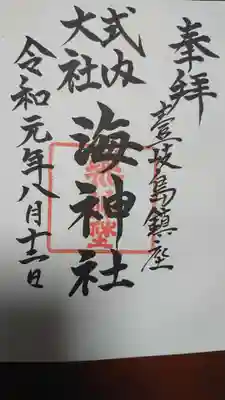 奉拝
壹岐島鎮座
式内
大社
海神社
令和元年八月十二日